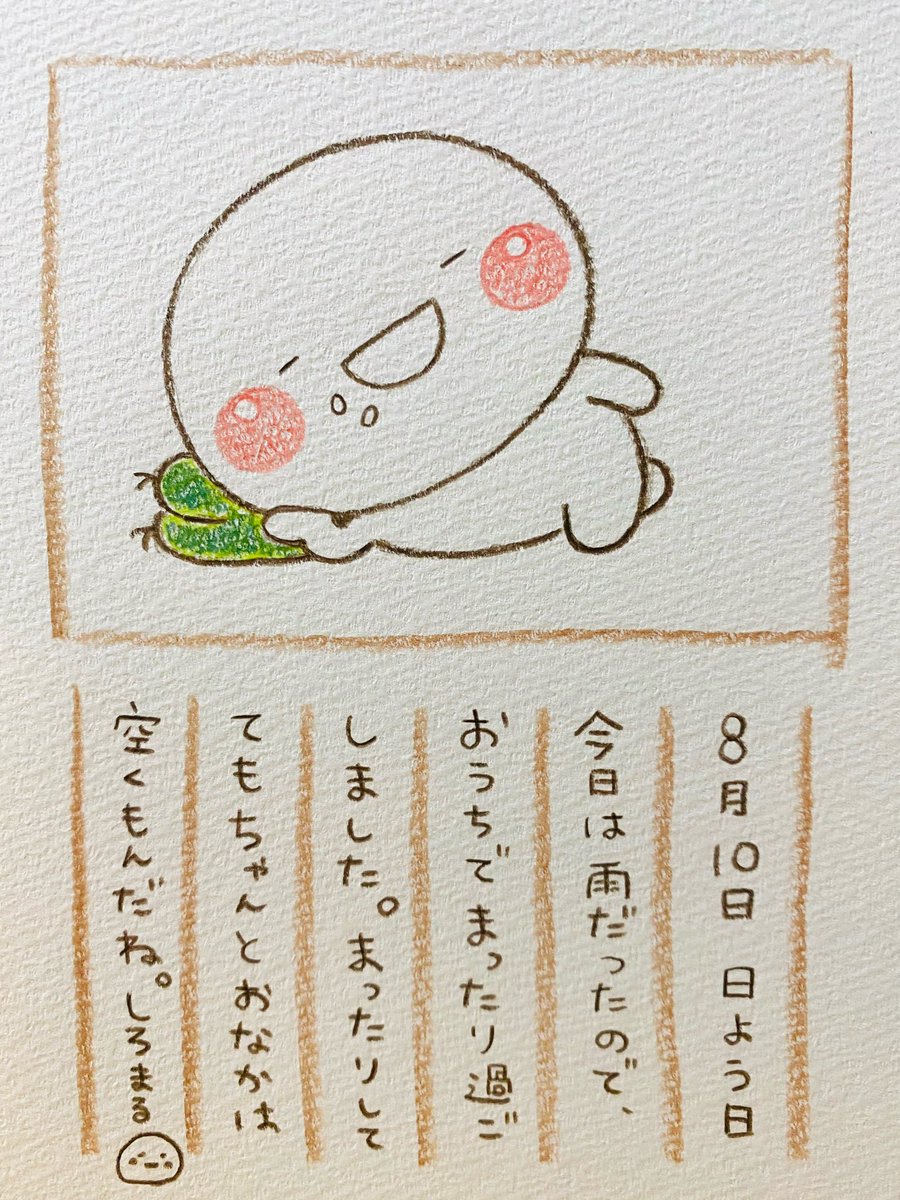 8月10日 日よう日
今日は雨だったので、
おうちでまったり過ご
しました。まったりして
てもちゃんとおなかは
空くもんだね。しろまる